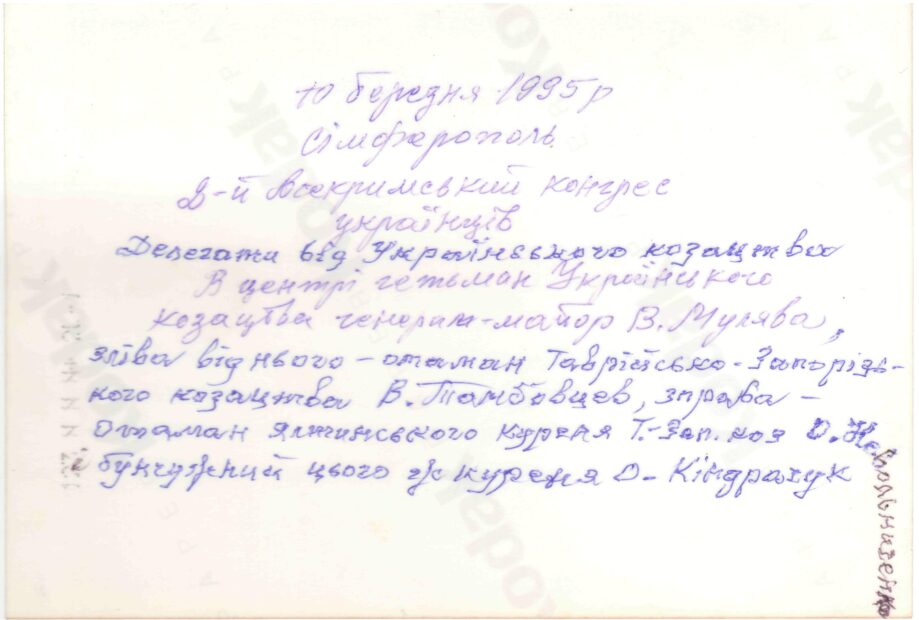 10 березня 1995р
Сімферополь
2-й Всекримський конгрес
українців
Делегати від Українського козацтва
В центрі гетьман Українського
козацтва генерал-майор В. Мулява,
зліва від нього - отаман Таврійсько-Запорізь-
кого козацтва В. Тамбовцев, справа -
отаман ялтинського куреня Т.-Зап. коз О. Не
вольниченко
бунчужний цього ж куреня О. Кіндрачук
Kodak